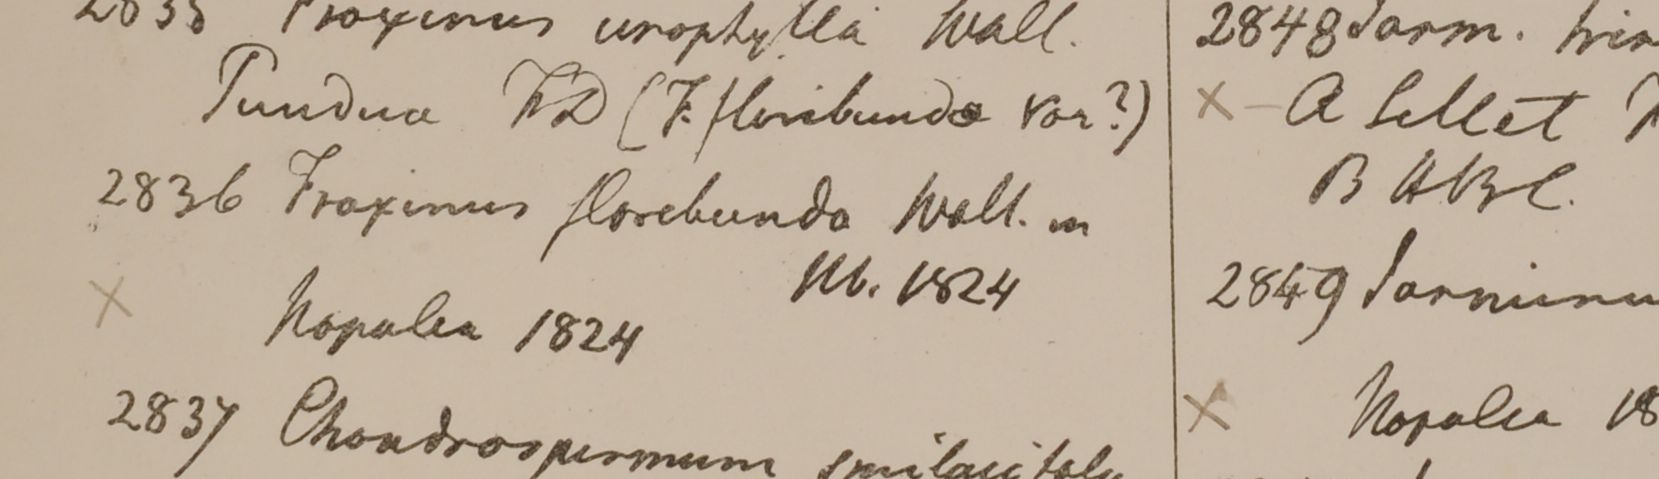 2835 Fraxinus urophylla Wall.
Pundua FD (F. floribunda Var?)
2836 Fraxinus floribunda Wall. in
Hb. 1824
x Napalia 1824
2837 Chondrospermum smilacifoli
2848 Jasm.
x - A Sillet
B HBC.
2849 Jasminum
x Napalia 18